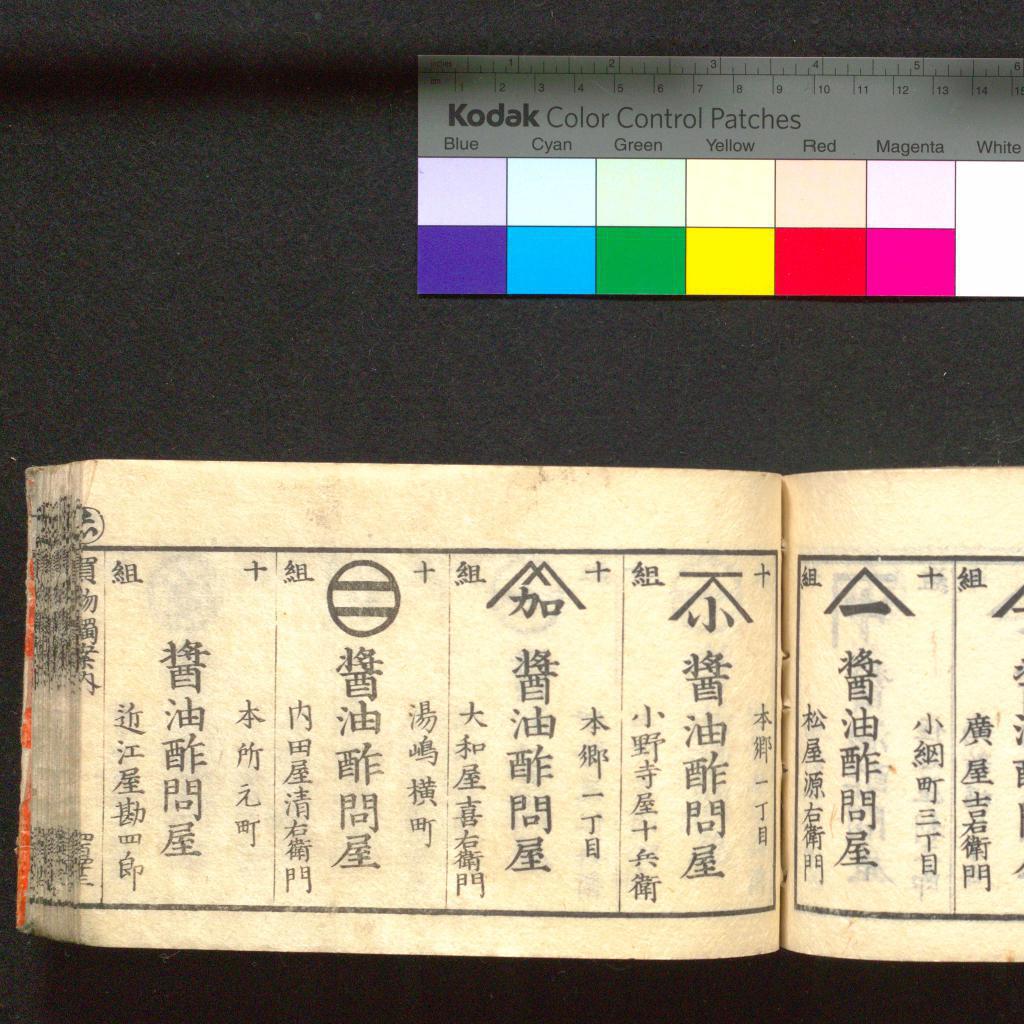 inches 1 2 3 4 5 6
cm 1 2 3 4 5 6 7 8 9 10 11 12 13 14 15
Kodak Color Control Patches
Blue Cyan Green Yellow Red Magenta White
廣屋吉右衛門
組
十
小網町三丁目
一
醤油酢問屋
松屋源右衛門
組
十
本郷一丁目
小
醤油酢問屋
小野寺屋十兵衛
組
十
本郷一丁目
加
醤油酢問屋
大和屋喜右衛門
組
十
湯嶋横町
二
醤油酢問屋
内田屋清右衛門
組
十
本所元町
醤油酢問屋
近江屋勘四郎
組
し
買物獨案内